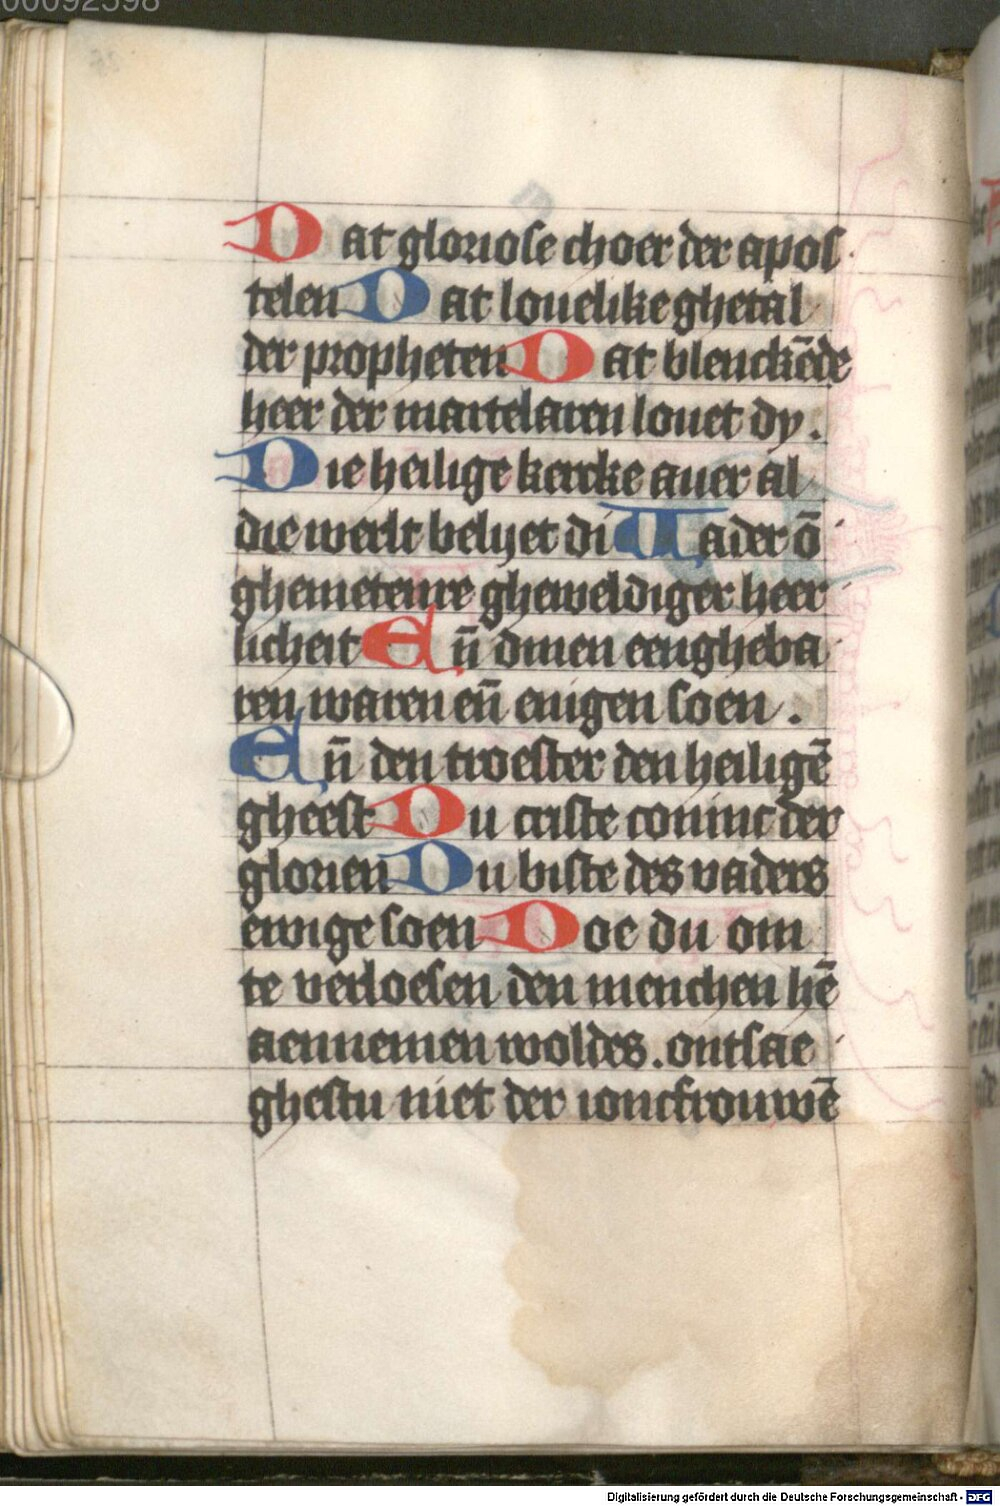 00092598
Dat gloriose choer der apos
telen Dat louelike ghetal
der propheten Dat blenckēde
heer der martelaren louet dy.
Die heilige kercke auer al
die werlt belyet di Vader ō
ghemetenre gheweldiger heer
licheit Eñ dinen eengheba
ren waren eñ enigen soen.
Eñ den troester den heiligē
gheest Du criste coninc der
glorien Du biste des vaders
ewige soen Doe du om
te verloesen den menchen hē
aennemen woldes. ontsae
ghestu niet der ioncfrouwē
Digitalisierung gefördert durch die Deutsche Forschungsgemeinschaft - DFG